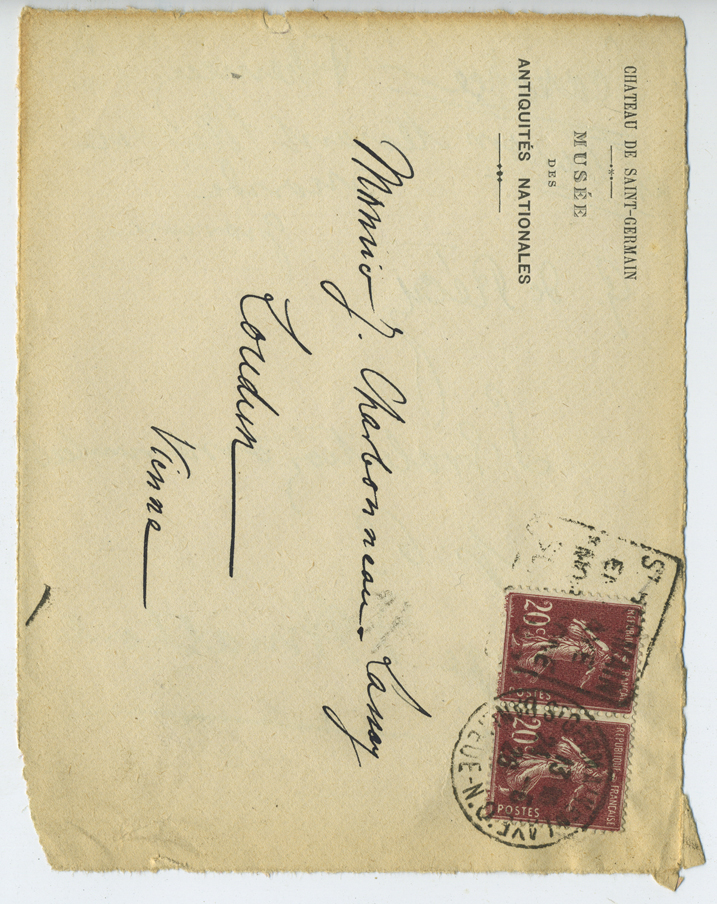 CHATEAU DE SAINT-GERMAIN
MUSÉE
DES
ANTIQUITÉS NATIONALES
Monsieur J. Charbonneau-Lassay
Loudun
Vienne
20c
POSTES
20c
RÉPUBLIQUE FRANÇAISE
POSTES